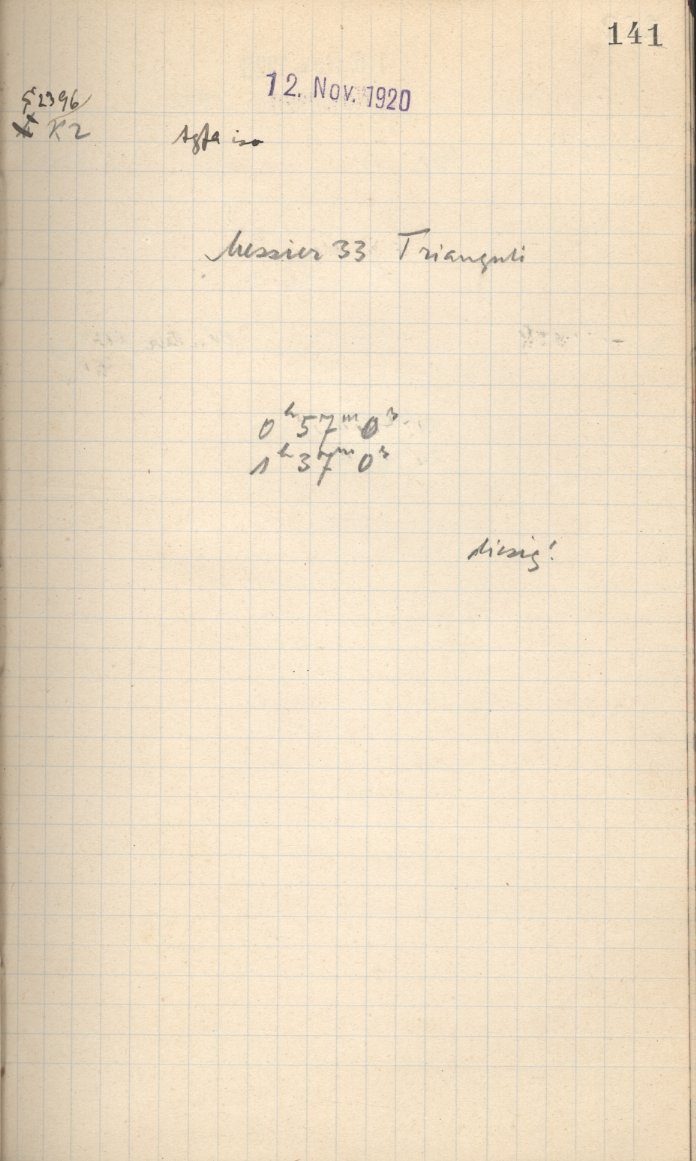 141
12. Nov. 1920
G 2396
K 2 Agfa iso
Messier 33 Trianguli
0ʰ57ᵐ0ˢ
1ʰ37ᵐ0ˢ
diesig!